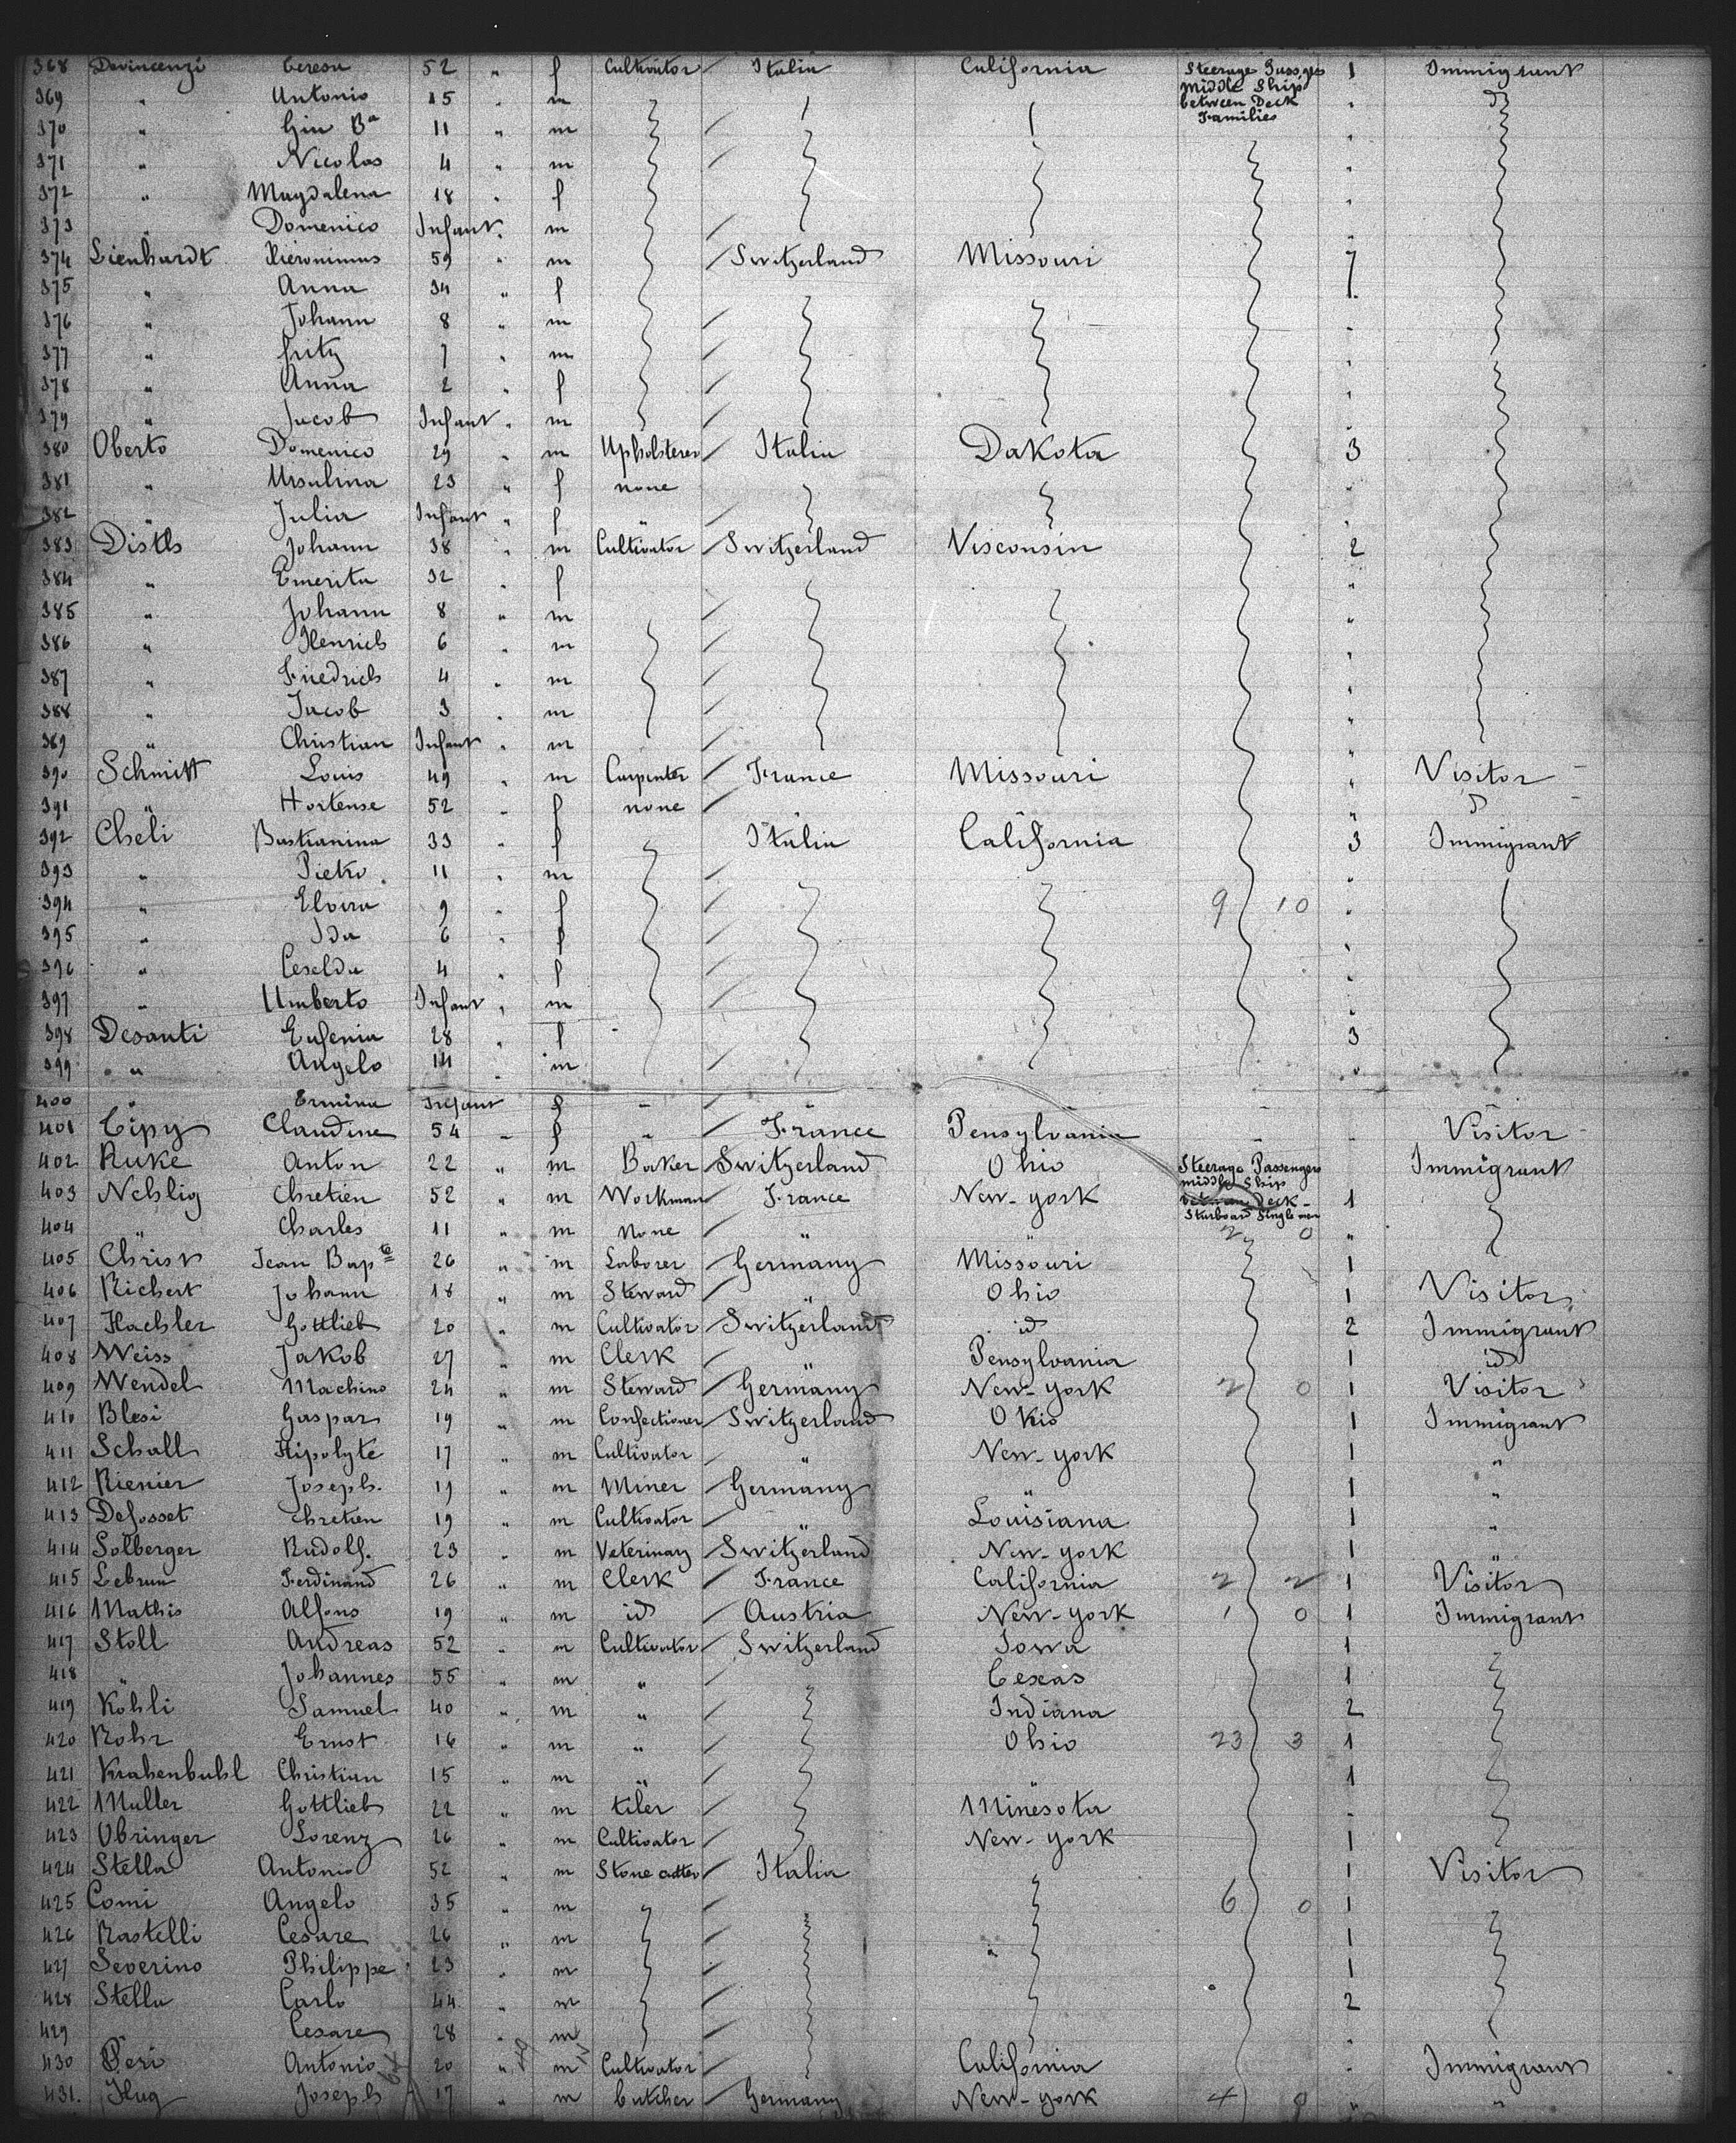 368 Devincenzi Teresa 52 " f Cultivator Italia California Steerage Passgrs 1 Immigrant
middle Ship
369 " Antonio 15 " m " d°
between Deck
Families
370 " Gin Bª 11 " m "
371 " Nicolas 4 " m "
372 " Magdalena 18 " f "
373 " Domenico Infant " m "
374 Lienhardt Hieronimus 59 " m Switzerland Missouri 7
375 " Anna 34 " f "
376 " Johann 8 " m "
377 " fritz 7 " m "
378 " Anna 2 " f "
379 " Jacob Infant " m "
380 Oberto Domenico 29 " m Upholsterer Italia Dakota 3
381 " Ursulina 23 " f none "
382 " Julia Infant " f " "
383 Johann 38 " m Cultivator Switzerland Visconsin 2
384 " Emerita 32 " f "
385 " Johann 8 " m "
386 " Henrich 6 " m "
387 " Friedrich 4 " m "
388 " Jacob 3 " m "
389 " Christian Infant " m "
390 Schmitt Louis 49 " m Carpenter France Missouri " Visitor
391 " Hortense 52 " f none " " " d°
392 Cheli Bastianina 33 " f Italia California 3 Immigrant
393 " Pietro 11 " m "
394 " Elvira 9 " f 9 10 "
395 " Ida 6 " f "
396 " Ceselda 4 " f "
397 " Umberto Infant " m "
398 Desanti Eugenia 28 " f 3
399 " Angelo 14 " m "
400 " Ermina Infant f "
401 Tipy Claudine 54 " f " France Pensylvania " " Visitor
402 Ruke Anton 22 " m Baker Switzerland Ohio Steerage Passengers Immigrant
middle Ship
403 Nehlig Chretien 52 " m Workman France New-york between Deck 1
Starboard Single men
404 " Charles 11 " m None " " 2 0 "
405 Christ Jean Bapte 26 " m Laborer Germany Missouri 1
406 Richert Johann 18 " m Steward " Ohio 1 Visitor
407 Hachler Gottlieb 20 " m Cultivator Switzerland id 2 Immigrant
408 Weiss Jakob 27 " m Clerk " Pensylvania 1 id
409 Wendel 24 " m Steward Germany New-york 2 0 1 Visitor
410 Blesi Gaspar 19 " m Confectioner Switzerland Ohio 1 Immigrant
411 Schall Hipolyte 17 " m Cultivator " New-york 1 "
412 Rienier Joseph. 19 " m Miner Germany " 1 "
413 Defosset Chretien 19 " m Cultivator " Louisiana 1 "
414 Solberger Rudolf. 23 " m Veterinary Switzerland New-york 1 "
415 Lebrun Ferdinand 26 " m Clerk France California 2 2 1 Visitor
416 Mathis Alfons 19 " m id Austria New-york 1 0 1 Immigrant
417 Stoll Andreas 52 " m Cultivator Switzerland Iowa 1
418 " Johannes 55 " m " Texas 1
419 Köhli Samuel 40 " m " Indiana 2
420 Rohr Ernst 16 " m " Ohio 23 3 1
421 Krahenbuhl Christian 15 " m " " 1
422 Muller Gottlieb 22 " m tiler Minesota "
423 Obringer Lorenz 26 " m Cultivator New-york 1
424 Stella Antonio 52 " m Stone cutter Italia 1 Visitor
425 Comi Angelo 35 " m 6 0 1
426 Rastelli Cesare 26 " m 1
427 Severino Philippe 23 " m 1
428 Stella Carlo 44 " m 2
429 " Cesare 28 " m "
430 Peri Antonio 20 " m Cultivator California " Immigrant
431. Hug Joseph 17 " m butcher Germany New-york 4 " "